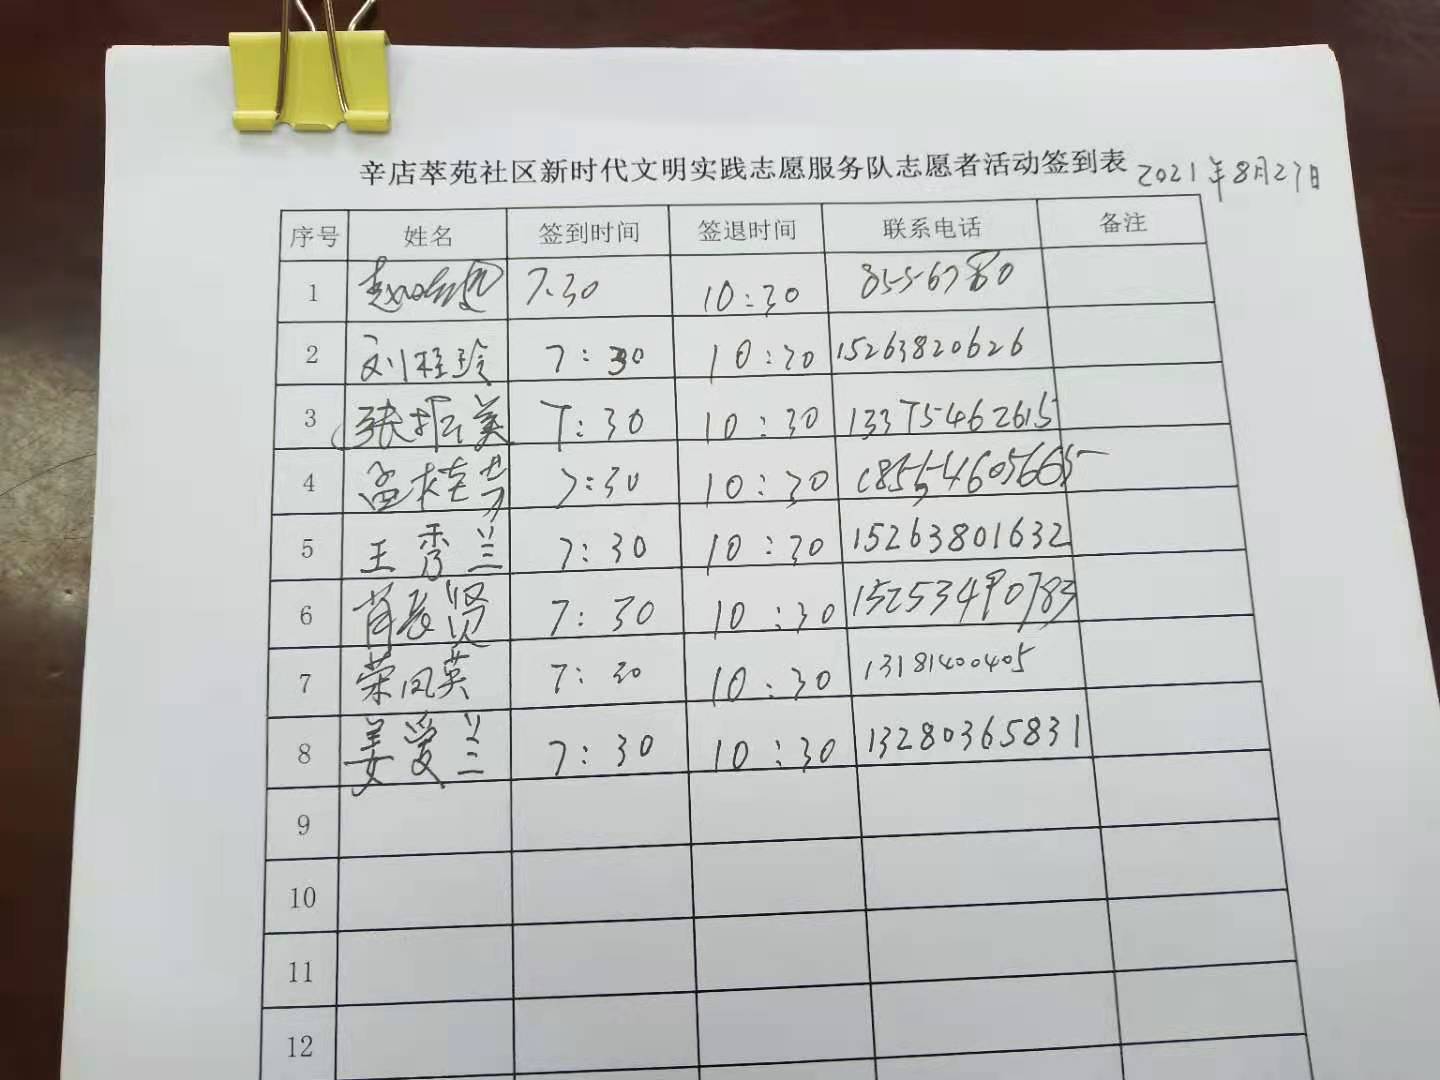 辛店萃苑社区新时代文明实践志愿服务队志愿者活动签到表 2021年8月27日
序号 姓名 签到时间 签退时间 联系电话 备注
1 7.30 10:30 8556780
2 刘桂玲 7:30 10:30 15263820626
3 张振美 7:30 10:30 13375462615
4 孟桂芳 7:30 10:30 18554605665
5 王秀兰 7:30 10:30 15263801632
6 肖长贤 7:30 10:30 15253490783
7 荣凤英 7:30 10:30 13181400405
8 姜爱兰 7:30 10:30 13280365831
9
10
11
12